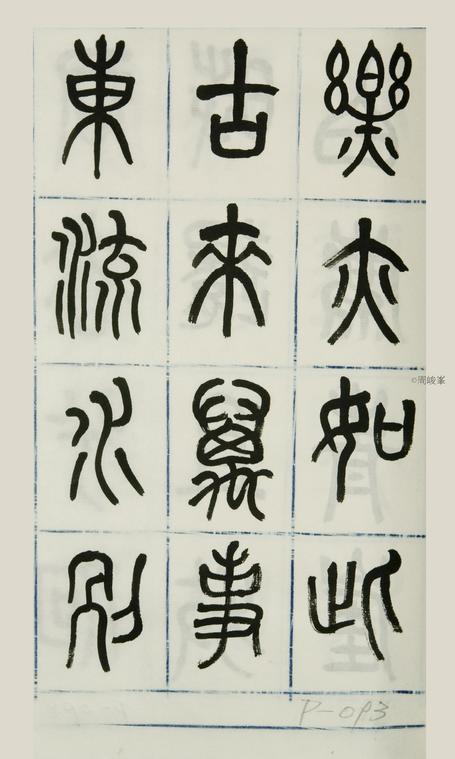 樂亦如此
古來萬事
東流水別
©周峻峯
P-093